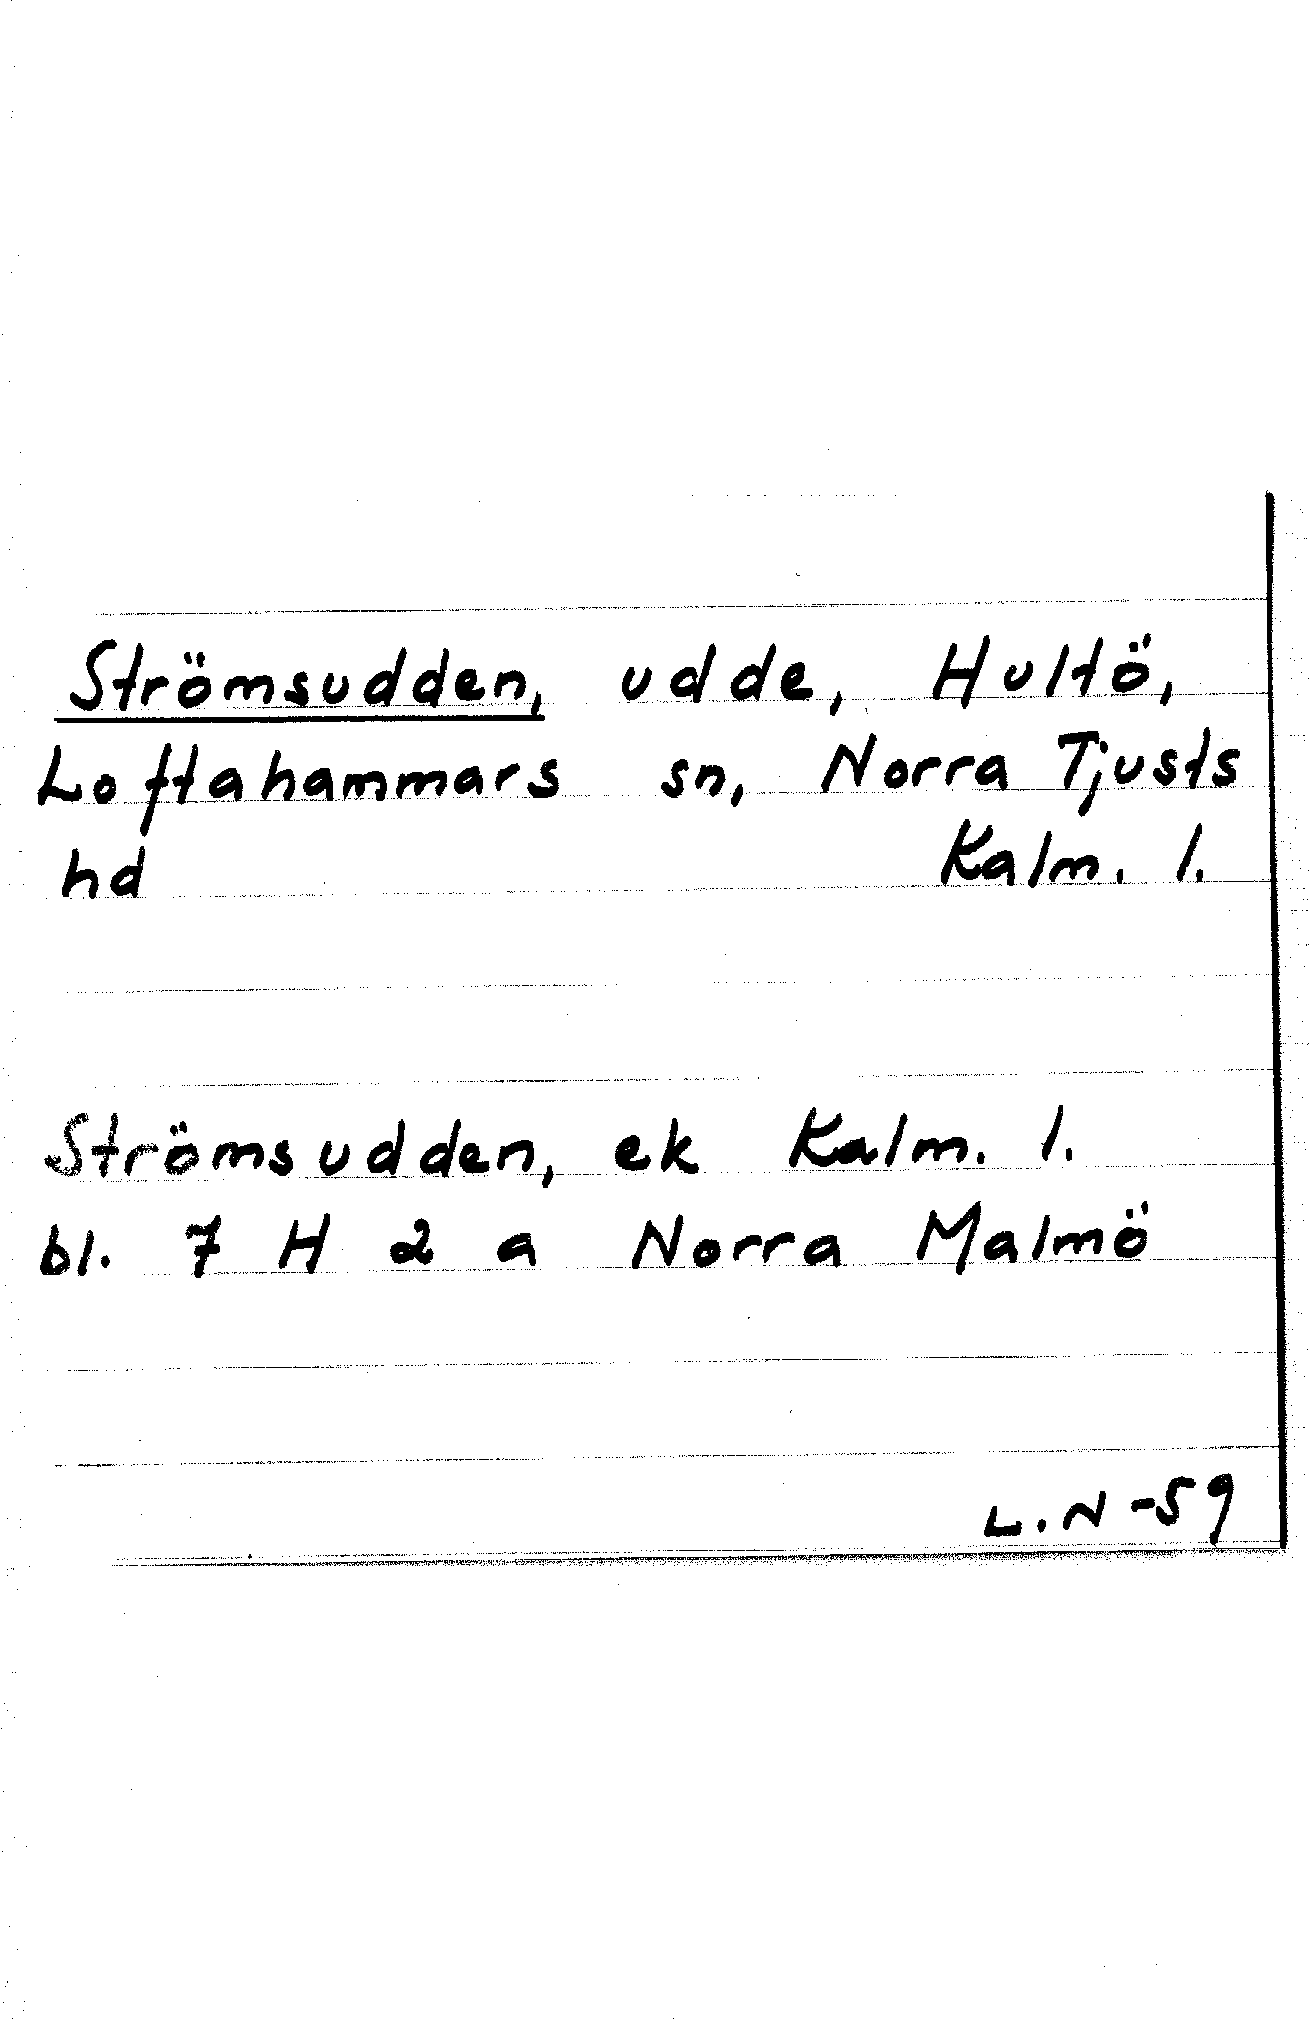 Strömsudden, udde, Hultö,
Loftahammars sn, Norra Tjusts
hd Kalm. l.
Strömsudden, ek Kalm. l.
bl. 7 H 2 a Norra Malmö
L.N -59